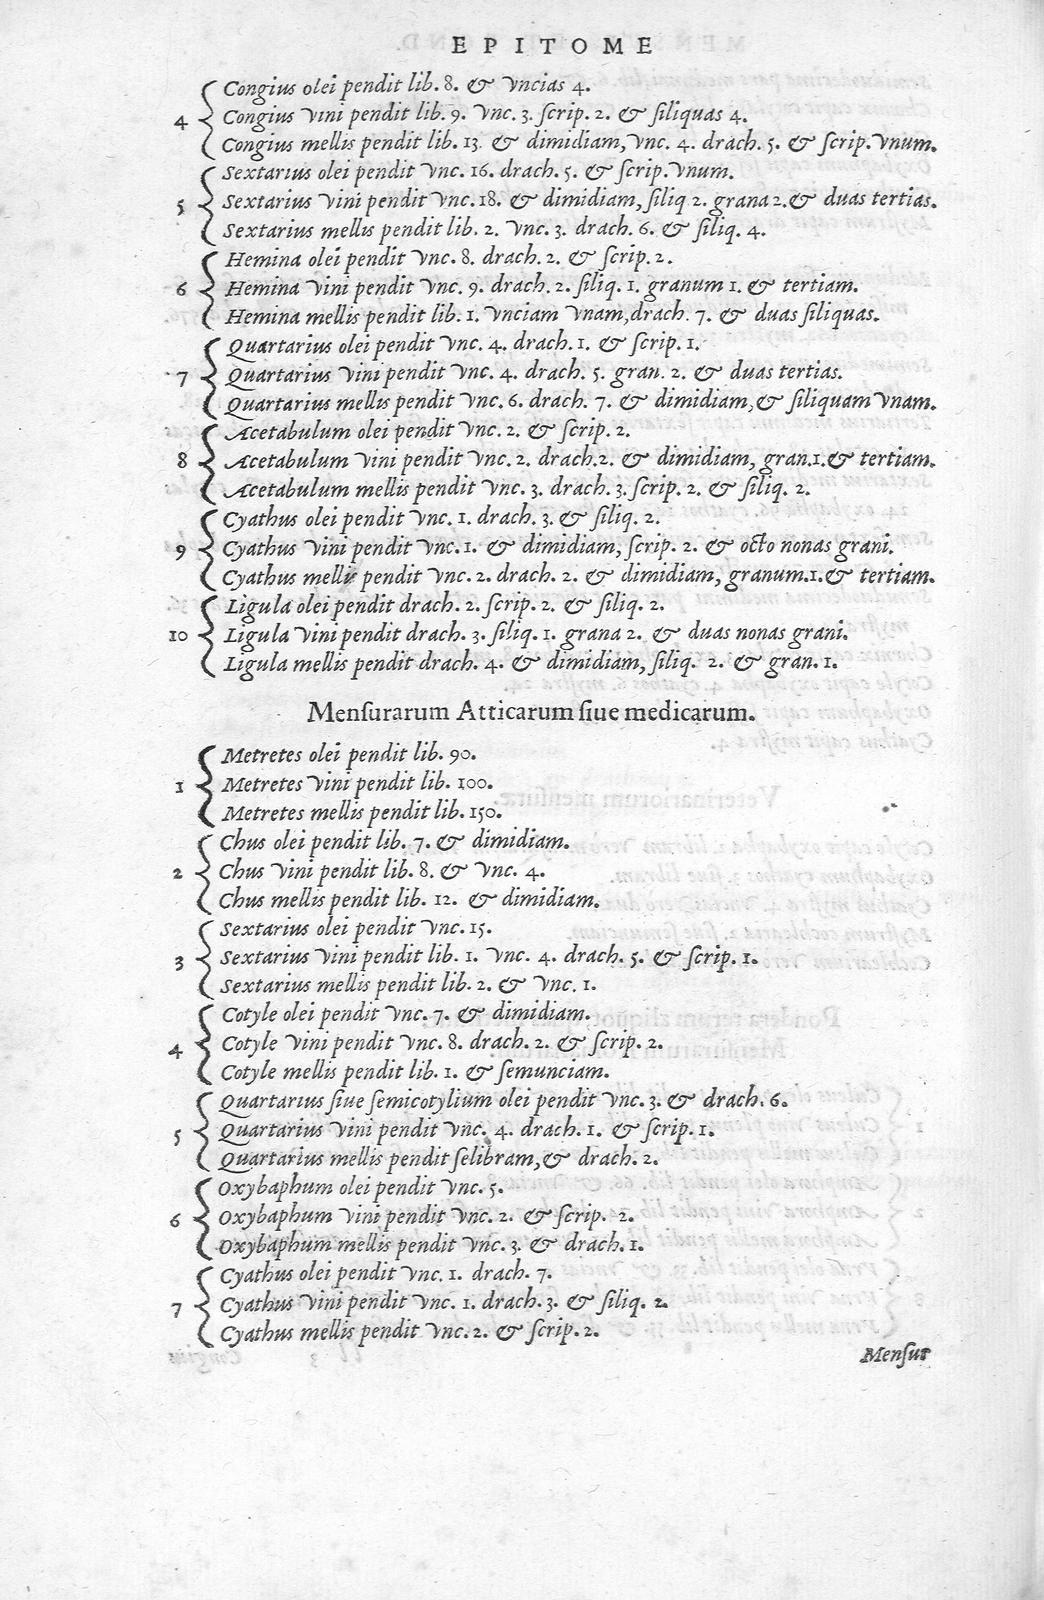 EPITOME
Congius olei pendit lib. 8. & vncias 4.
4 Congius vini pendit lib. 9. vnc. 3. ſcrip. 2. & ſiliquas 4.
Congius mellis pendit lib. 13. & dimidiam, vnc. 4. drach. 5. & ſcrip. vnum.
Sextarius olei pendit vnc. 16. drach. 5. & ſcrip. vnum.
5 Sextarius vini pendit vnc. 18. & dimidiam, ſiliq 2. grana 2. & duas tertias.
Sextarius mellis pendit lib. 2. vnc. 3. drach. 6. & ſiliq. 4.
Hemina olei pendit vnc. 8. drach. 2. & ſcrip. 2.
6 Hemina vini pendit vnc. 9. drach. 2. ſiliq. 1. granum 1. & tertiam.
Hemina mellis pendit lib. 1. vnciam vnam, drach. 7. & duas ſiliquas.
Quartarius olei pendit vnc. 4. drach. 1. & ſcrip. 1.
7 Quartarius vini pendit vnc. 4. drach. 5. gran. 2. & duas tertias.
Quartarius mellis pendit vnc. 6. drach. 7. & dimidiam, & ſiliquam vnam.
Acetabulum olei pendit vnc. 2. & ſcrip. 2.
8 Acetabulum vini pendit vnc. 2. drach. 2. & dimidiam, gran. 1. & tertiam.
Acetabulum mellis pendit vnc. 3. drach. 3. ſcrip. 2. & ſiliq. 2.
Cyathus olei pendit vnc. 1. drach. 3. & ſiliq. 2.
9 Cyathus vini pendit vnc. 1. & dimidiam, ſcrip. 2. & octo nonas grani.
Cyathus mellis pendit vnc. 2. drach. 2. & dimidiam, granum. 1. & tertiam.
Ligula olei pendit drach. 2. ſcrip. 2. & ſiliq. 2.
10 Ligula vini pendit drach. 3. ſiliq. 1. grana 2. & duas nonas grani.
Ligula mellis pendit drach. 4. & dimidiam, ſiliq. 2. & gran. 1.
Menſurarum Atticarum ſiue medicarum.
Metretes olei pendit lib. 90.
1 Metretes vini pendit lib. 100.
Metretes mellis pendit lib. 150.
Chus olei pendit lib. 7. & dimidiam.
2 Chus vini pendit lib. 8. & vnc. 4.
Chus mellis pendit lib. 12. & dimidiam.
Sextarius olei pendit vnc. 15.
3 Sextarius vini pendit lib. 1. vnc. 4. drach. 5. & ſcrip. 1.
Sextarius mellis pendit lib. 2. & vnc. 1.
Cotyle olei pendit vnc. 7. & dimidiam.
4 Cotyle vini pendit vnc. 8. drach. 2. & ſcrip. 2.
Cotyle mellis pendit lib. 1. & ſemunciam.
Quartarius ſiue ſemicotylium olei pendit vnc. 3. & drach. 6.
5 Quartarius vini pendit vnc. 4. drach. 1. & ſcrip. 1.
Quartarius mellis pendit ſelibram, & drach. 2.
Oxybaphum olei pendit vnc. 5.
6 Oxybaphum vini pendit vnc. 2. & ſcrip. 2.
Oxybaphum mellis pendit vnc. 3. & drach. 1.
Cyathus olei pendit vnc. 1. drach. 7.
7 Cyathus vini pendit vnc. 1. drach. 3. & ſiliq. 2.
Cyathus mellis pendit vnc. 2. & ſcrip. 2.
Menſur